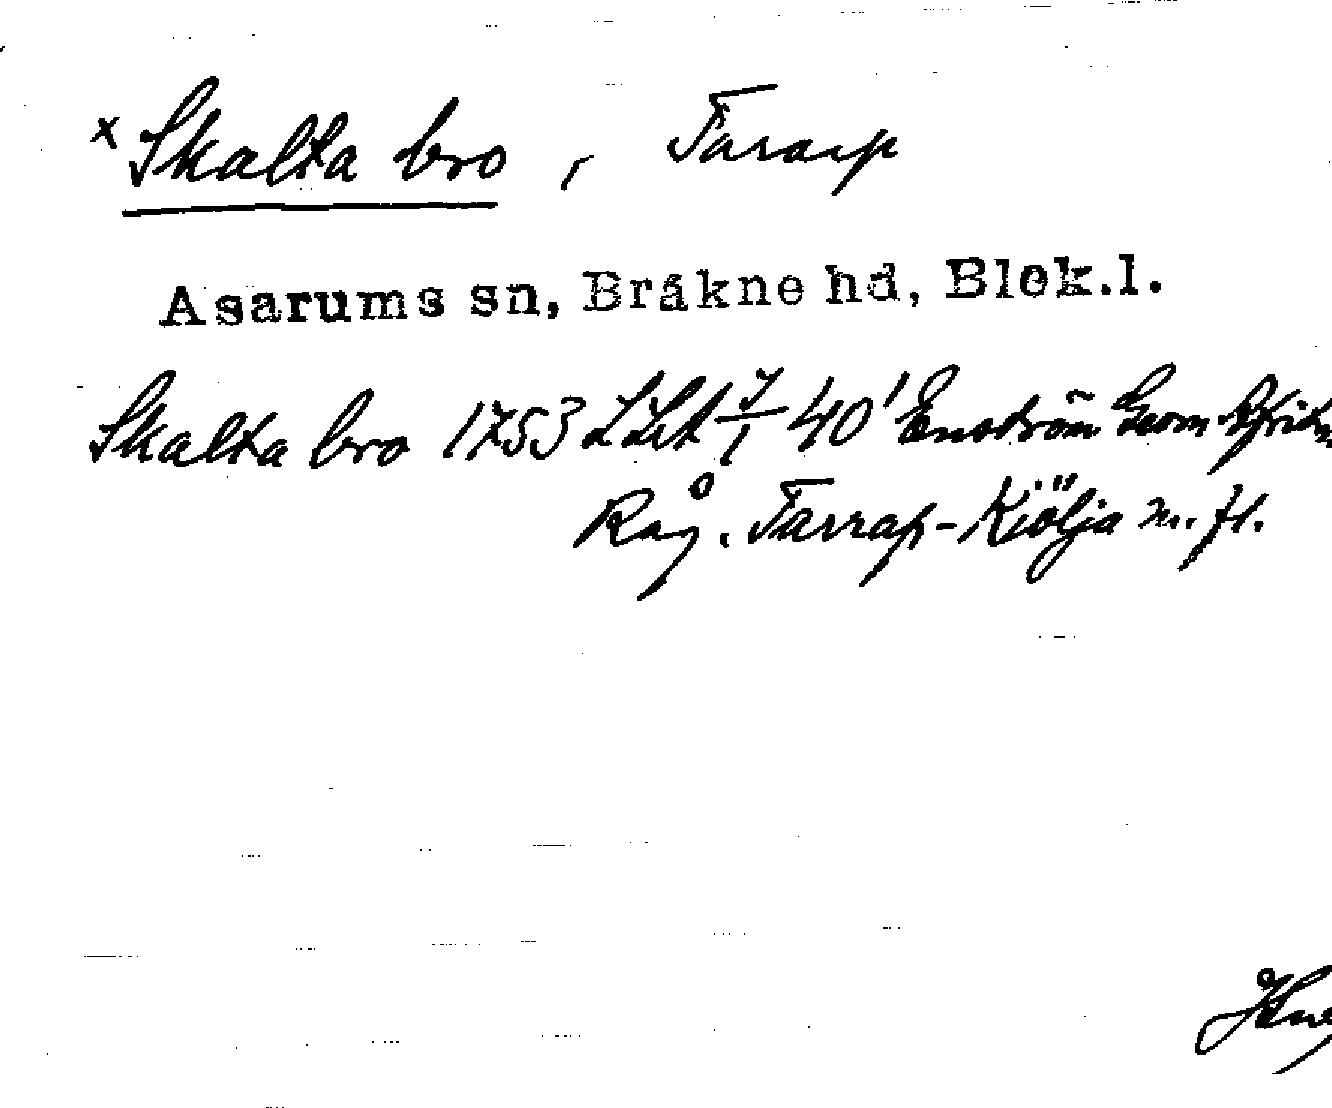 x Skalta bro, Tararp
Asarums sn, Bräkne hd, Blek.l.
Skalta bro 1753 LSt 7/1 40' Enström Geom
Råg. Tarrap-Kiölja m.fl.